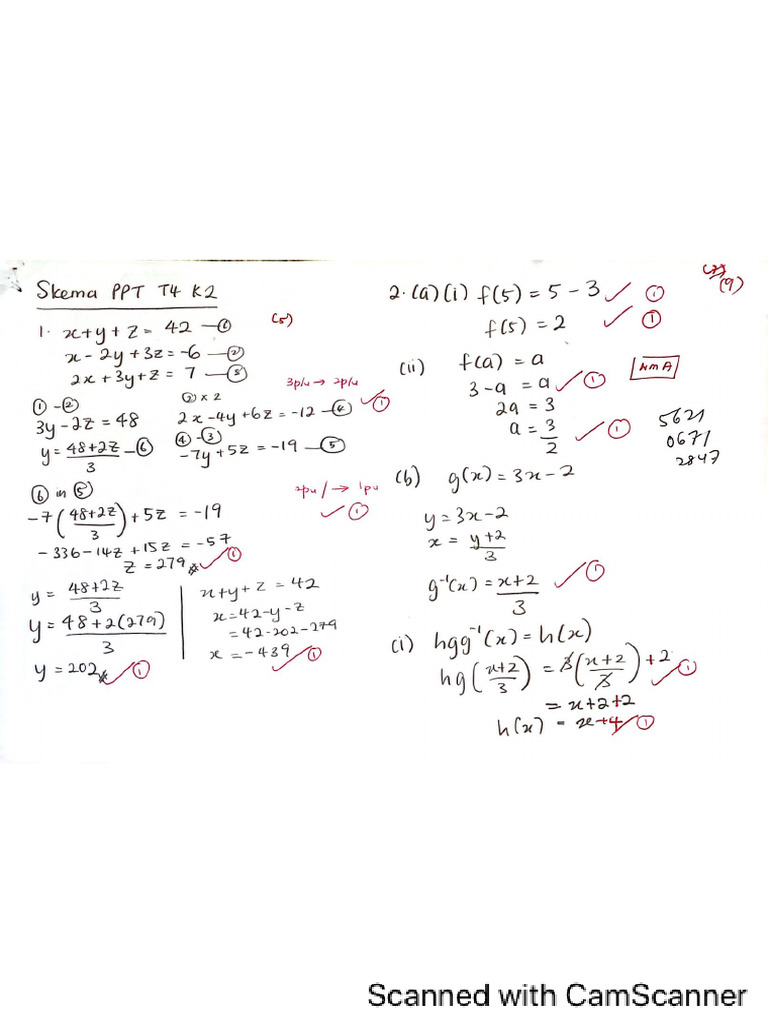 Skema PPT T4 K2
1. x+y+z = 42 —①
(5)
x-2y+3z=-6 —②
2x+3y+z= 7 —③
3p/u → 2p/u
①-②
3y-2z=48
y= 48+2z/3 —⑥
② x 2
2x-4y+6z=-12 —④ ✓①
④-③
-7y+5z=-19 —⑤
⑥ in ⑤
2pu/ → 1pu
-7(48+2z/3)+5z = -19 ✓①
-336-14z+15z = -57
z = 279 ✓①
y= 48+2z/3
y= 48+2(279)/3
y = 202 ✓①
x+y+z=42
x=42-y-z
=42-202-279
x = -439 ✓①
(9)
2.(a)(i) f(5) = 5-3 ✓ ①
f(5) = 2 ✓ ①
(ii) f(a) = a
3-a = a ✓①
2a = 3
a = 3/2 ✓①
5621
0671
2847
(b) g(x) = 3x-2
y=3x-2
x = y+2/3
g⁻¹(x) = x+2/3 ✓①
(i) hgg⁻¹(x) = h(x)
hg(x+2/3) = 3(x+2/3)+2 ✓①
= x+2+2
h(x) = x+4 ✓①
Scanned with CamScanner